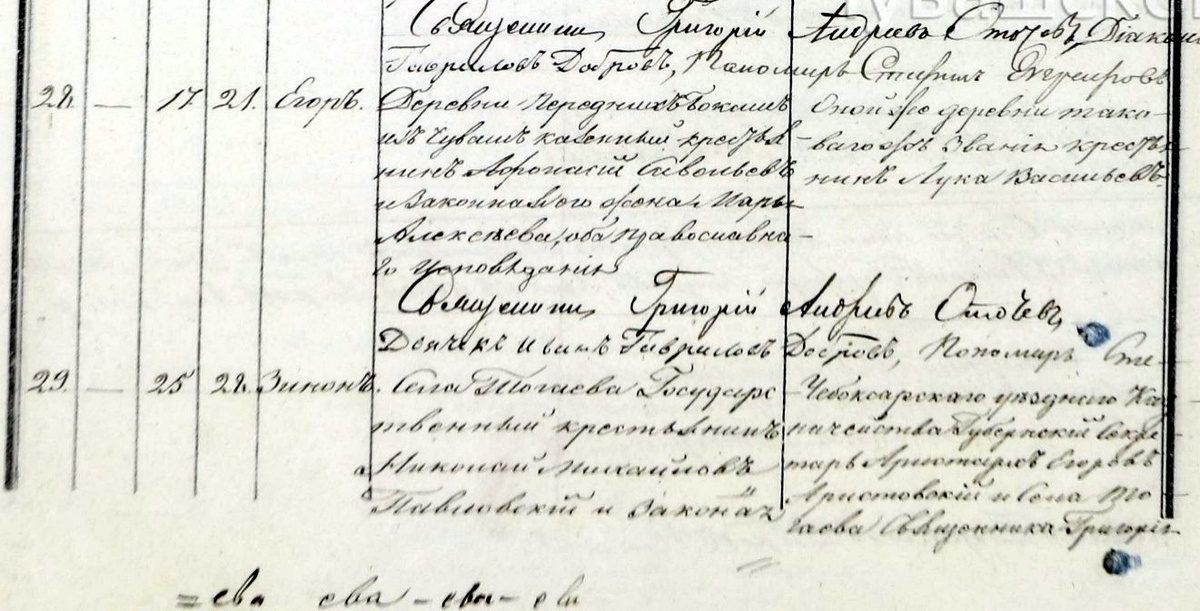 Священникъ Григорій Андреевъ Стоговъ, Діаконъ
Гавриловъ Добровъ, Пономарь
28. — 17 21. Егоръ. Деревни Переднихъ Бокашъ
изъ Чувашъ казенный крестья-
нинъ Афонасій Савельевъ
и законная его жена Марья
Алексѣева, оба православна-
го исповѣданія
Оной же деревни тако-
ваго же званія крестья-
нинъ Лука Васильевъ.
Священникъ Григорій Андреевъ
Дьячекъ Иванъ Гавриловъ Добровъ, Пономарь Сте-
29. — 25 28. Зинонъ. Села Тогаева Государс-
твенный крестьянинъ
Николай Михайловъ
Павловскій и законная
Чебоксарскаго уѣзднаго Каз-
начейства Губернскій Секре-
тарь Аристархъ Егоровъ
Аристовскій и Села То-
гаева Священника Григорія
= ева ева – ева – ева